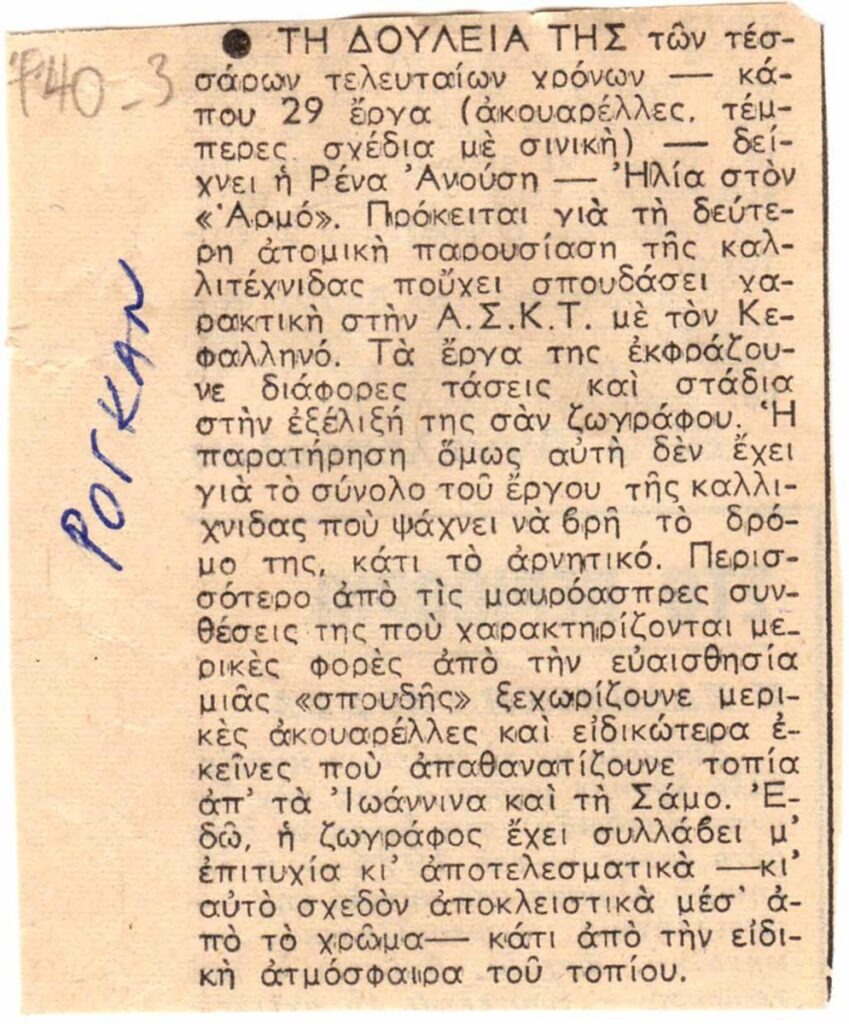 ● ΤΗ ΔΟΥΛΕΙΑ ΤΗΣ τῶν τέσ-
σάρων τελευταίων χρόνων — κά-
που 29 ἔργα (ἀκουαρέλλες, τέμ-
περες, σχέδια μὲ σινικὴ) — δεί-
χνει ἡ Ρένα Ἀνούση — Ἠλία στὸν
«Ἁρμό». Πρόκειται γιὰ τὴ δεύτε-
ρη ἀτομικὴ παρουσίαση τῆς καλ-
λιτέχνιδας ποὔχει σπουδάσει χα-
ρακτικὴ στὴν Α.Σ.Κ.Τ. μὲ τὸν Κε-
φαλληνό. Τὰ ἔργα της ἐκφράζου-
νε διάφορες τάσεις καὶ στάδια
στὴν ἐξέλιξή της σὰν ζωγράφου. Ἡ
παρατήρηση ὅμως αὐτὴ δὲν ἔχει
γιὰ τὸ σύνολο τοῦ ἔργου τῆς καλλι-
χνιδας ποὺ ψάχνει νὰ βρῆ τὸ δρό-
μο της, κάτι τὸ ἀρνητικό. Περισ-
σότερο ἀπὸ τὶς μαυρόασπρες συν-
θέσεις της ποὺ χαρακτηρίζονται με-
ρικὲς φορὲς ἀπὸ τὴν εὐαισθησία
μιᾶς «σπουδῆς» ξεχωρίζουνε μερι-
κὲς ἀκουαρέλλες καὶ εἰδικώτερα ἐ-
κεῖνες ποὺ ἀπαθανατίζουνε τοπία
ἀπ' τὰ Ἰωάννινα καὶ τὴ Σάμο. Ἐ-
δῶ, ἡ ζωγράφος ἔχει συλλάβει μ'
ἐπιτυχία κι' ἀποτελεσματικὰ —κι'
αὐτὸ σχεδὸν ἀποκλειστικὰ μέσ' ἀ-
πὸ τὸ χρῶμα— κάτι ἀπὸ τὴν εἰδι-
κὴ ἀτμόσφαιρα τοῦ τοπίου.
740-3
ΡΟΓΚΑΝ